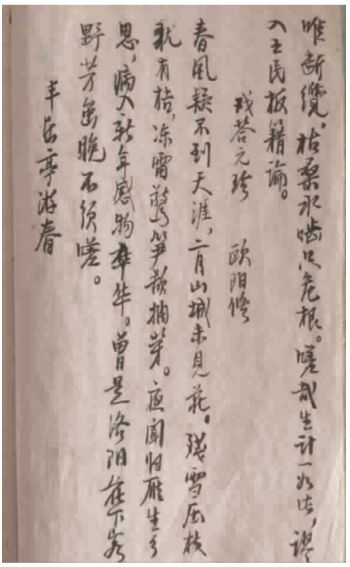 唯断缆。枯桑水啮只危根。嗟哉生计一如此,谬
入王民板籍论。
戏答元珍 欧阳修
春风疑不到天涯,二月山城未见花。残雪压枝
犹有桔,冻雷惊笋欲抽芽。夜闻归雁生乡
思,病入新年感物华。曾是洛阳花下客
野芳虽晚不须嗟。
丰乐亭游春